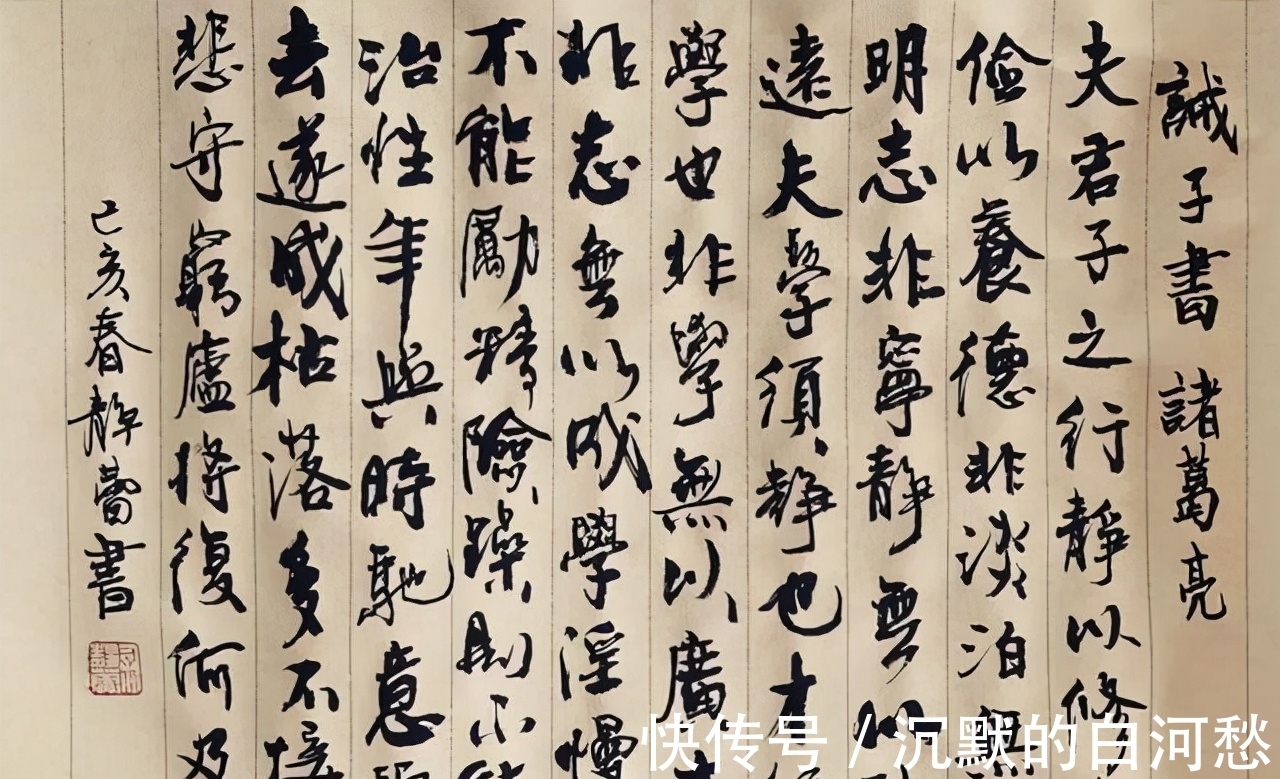 誡子書 諸葛亮
夫君子之行靜以修
儉以養德非淡泊無
明志非寧靜無以
遠夫學須靜也才
學也非學無以廣
非志無以成學淫慢
不能勵精險躁則不
治性年與時馳意
去遂成枯落多不接
悲守窮廬將復何及
己亥春靜蕾書
快传号 / 沉默的白河愁